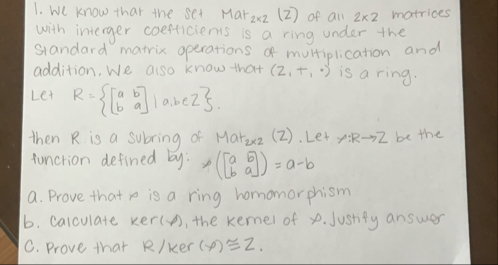 1. We know that the set Mat₂ₓ₂ (Z) of all 2x2 matrices
with interger coefficients is a ring under the
standard matrix operations of multiplication and
addition. We also know that (Z, +, ·) is a ring.
Let R = {[a b; b a] | a, b ∈ Z}.
then R is a subring of Mat₂ₓ₂ (Z). Let φ: R→Z be the
function defined by: φ([a b; b a]) = a-b
a. Prove that φ is a ring homomorphism
b. Calculate ker(φ), the kernel of φ. Justify answer
C. Prove that R/ker (φ) ≅ Z.